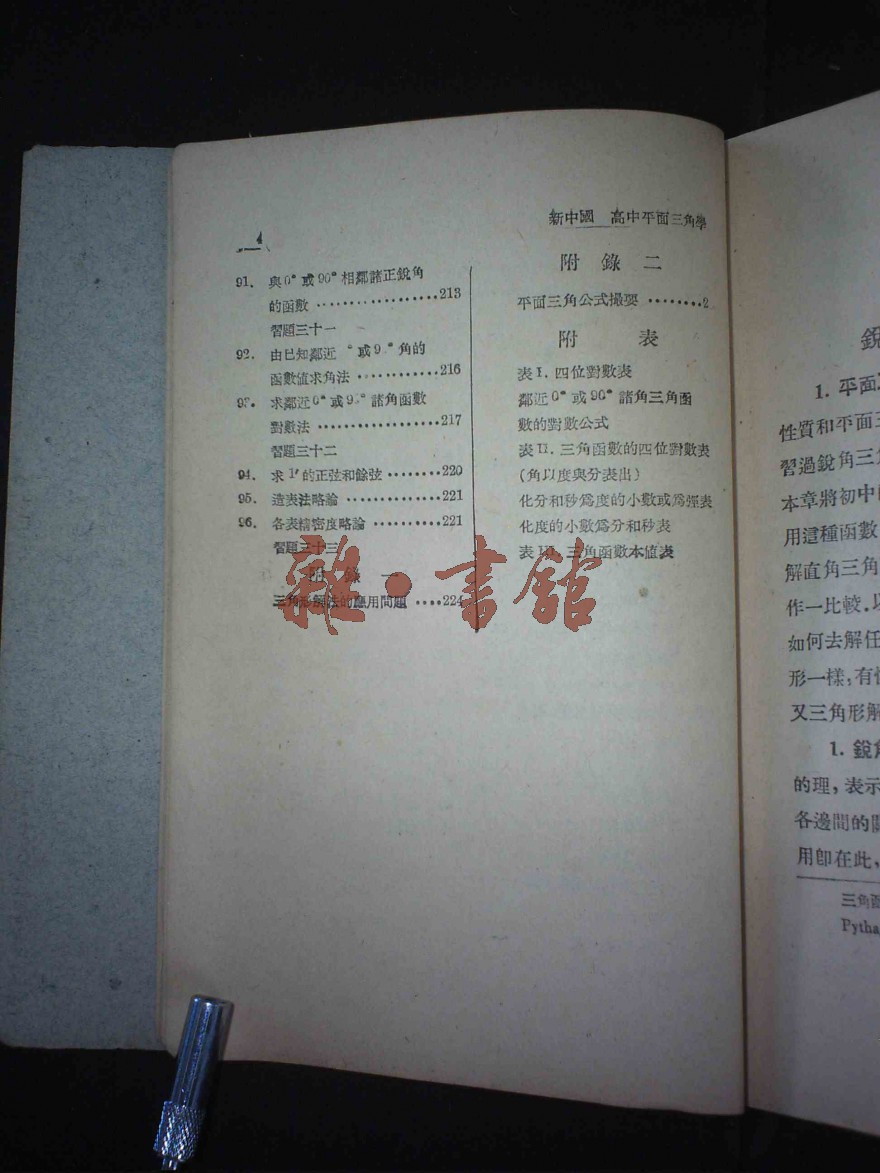 新中國 高中平面三角學
4
91. 與0°或90°相鄰諸正銳角
的函數 ··················213
習題三十一
92. 由已知鄰近 °或9 °角的
函數値求角法 ············216
93. 求鄰近0°或9 °諸角函數
對數法 ··················217
習題三十二
94. 求1′的正弦和餘弦 ········220
95. 造表法略論 ··············221
96. 各表精密度略論 ··········221
習題三十三
附錄一
三角形解法的應用問題 ····224
附錄二
平面三角公式撮要 ········2
附表
表I. 四位對數表
鄰近0°或90°諸角三角函
數的對數公式
表II. 三角函數的四位對數表
(角以度與分表出)
化分和秒爲度的小數或爲弳表
化度的小數爲分和秒表
表III. 三角函數本値表
雜·書館
銳
1. 平面
性質和平面三
習過銳角三
本章將初中
用這種函數
解直角三角
作一比較.以
如何去解任
形一樣,有
又三角形解
1. 銳角
的理,表示
各邊間的關
用卽在此,
三角函
Pytha